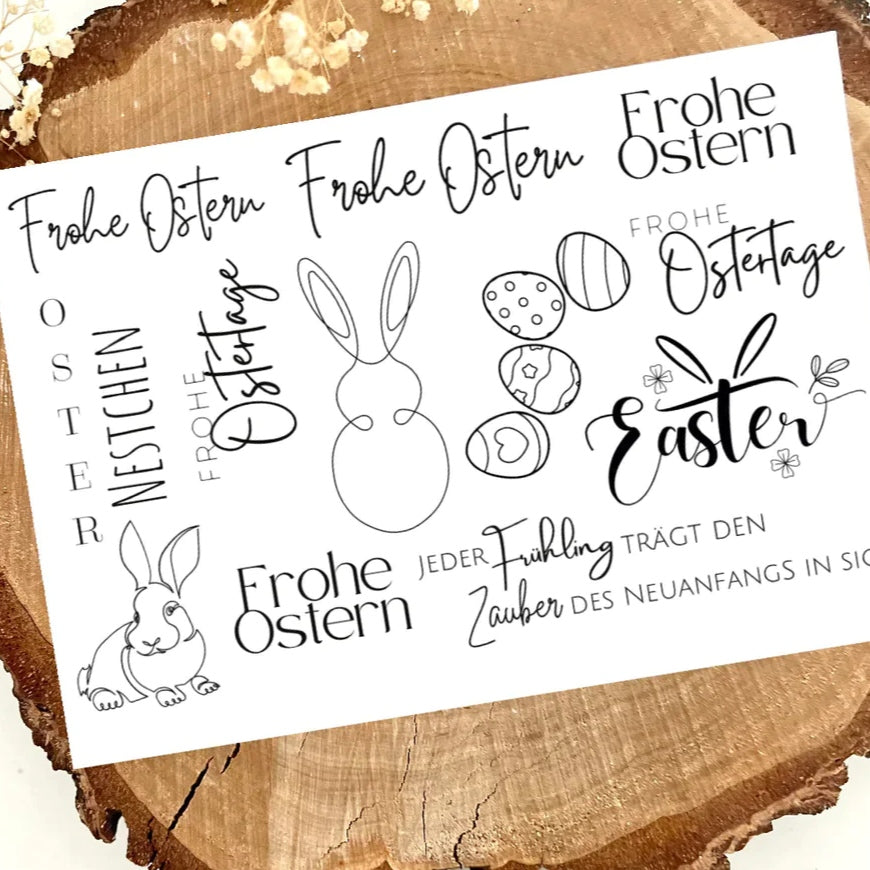 Frohe Ostern
Frohe Ostern
Frohe
Ostern
FROHE
Ostertage
OSTER
NESTCHEN
FROHE
Ostertage
Easter
Frohe
Ostern
JEDER Frühling TRÄGT DEN
Zauber DES NEUANFANGS IN SIC